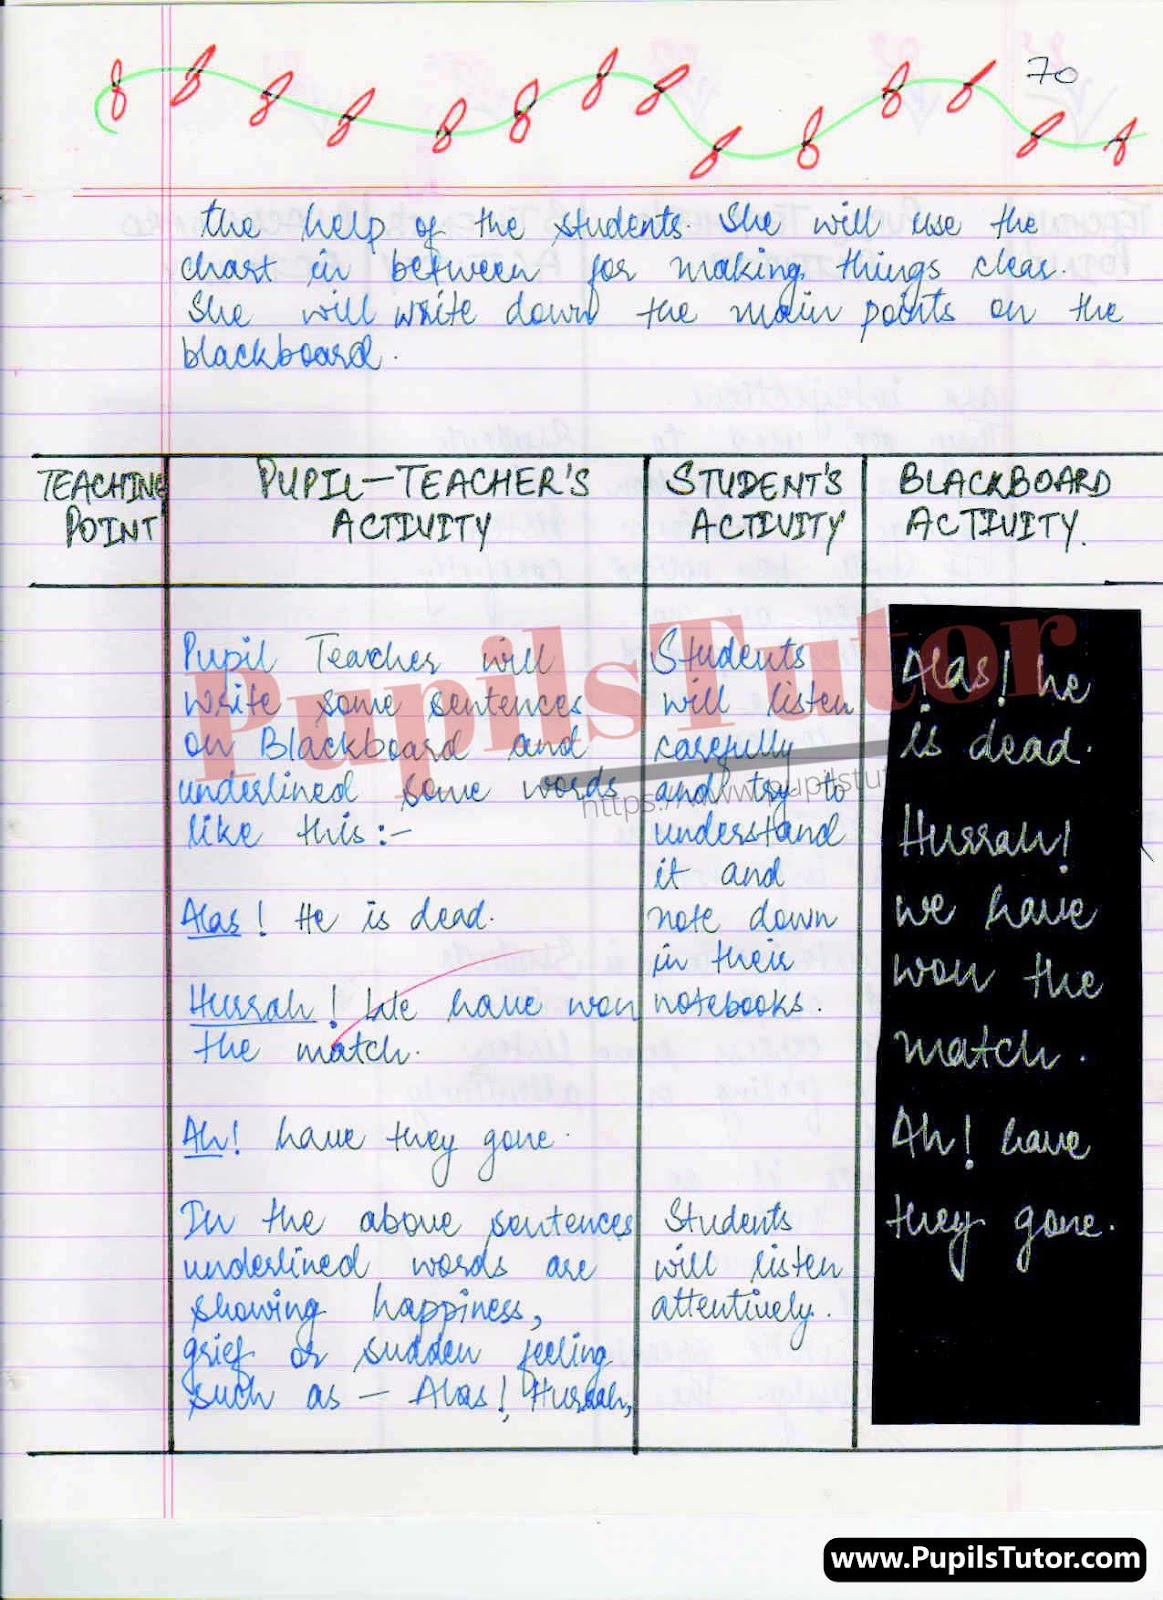 70
the help of the students. She will use the
chart in between for making things clear.
She will write down the main points on the
blackboard.
TEACHING
POINT
PUPIL-TEACHER'S
ACTIVITY
STUDENT'S
ACTIVITY
BLACKBOARD
ACTIVITY.
Pupil Teacher will
write some sentences
on Blackboard and
underlined some words
like this:-
Alas! He is dead.
Hurrah! We have won
the match.
Ah! have they gone.
In the above sentences
underlined words are
showing happiness,
grief or sudden feeling
such as - Alas! Hurrah,
Students
will listen
carefully
and try to
understand
it and
note down
in their
notebooks.
Students
will listen
attentively.
Alas! he
is dead.
Hurrah!
we have
won the
match.
Ah! have
they gone.
PupilsTutor
www.PupilsTutor.com